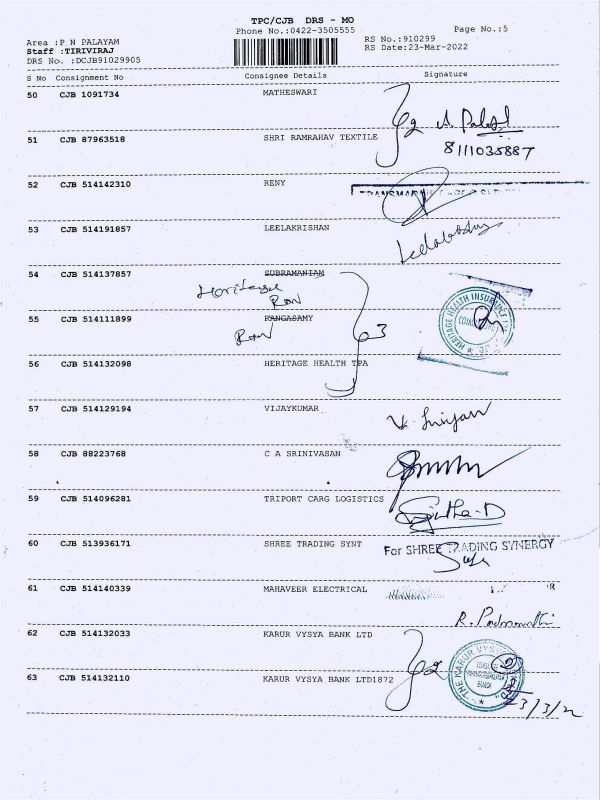 TPC/CJB DRS - MO
Phone No.:0422-3505555
Page No.:5
Area :P N PALAYAM
RS No.:910299
Staff :TIRIVIRAJ
RS Date:23-Mar-2022
DRS No. :DCJB91029905
S No Consignment No Consignee Details Signature
50 CJB 1091734 MATHESWARI
51 CJB 87963518 SHRI RAMRAHAV TEXTILE
2
8111035887
52 CJB 514142310 RENY
53 CJB 514191857 LEELAKRISHAN
54 CJB 514137857 SUBRAMANIAM
Heritage
55 CJB 514111899 RANGASAMY
3
HERITAGE HEALTH INSURANCE
56 CJB 514132098 HERITAGE HEALTH TPA
57 CJB 514129194 VIJAYKUMAR
58 CJB 88223768 C A SRINIVASAN
59 CJB 514096281 TRIPORT CARG LOGISTICS
60 CJB 513936171 SHREE TRADING SYNT
For SHREE TRADING SYNERGY
61 CJB 514140339 MAHAVEER ELECTRICAL
R
R. Padmavathi
62 CJB 514132033 KARUR VYSYA BANK LTD
2
THE KARUR VYSYA
BANK
63 CJB 514132110 KARUR VYSYA BANK LTD1872